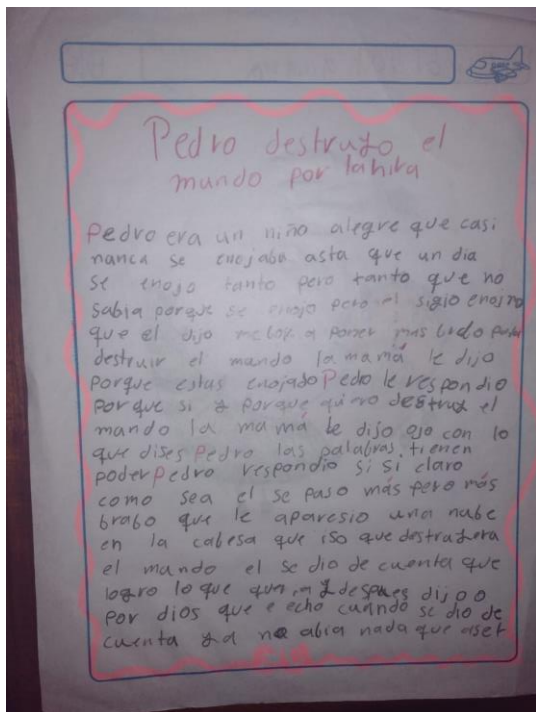 Pedro destruyo el
mundo por la hira
Pedro era un niño alegre que casi
nanca se enojaba asta que un dia
se enojo tanto pero tanto que no
sabia porque se enojo pero el sigio enojno
que el dijo me boy a poner mas
destruir el mando la mamá le dijo
porque estas enojado Pedro le respondio
porque si y porque quiero destruy el
mando la mamá le dijo ojo con lo
que dises Pedro las palabras. tienen
poder Pedro respondio si si claro
como sea el se paso más pero más
brabo que le aparesio una nube
en la cabesa que iso que destrayera
el mando el se dio de cuenta que
logro lo que queria y despues dijo o
por dios que e echo cuando se dio de
cuenta ya no abia nada que aser
Fin